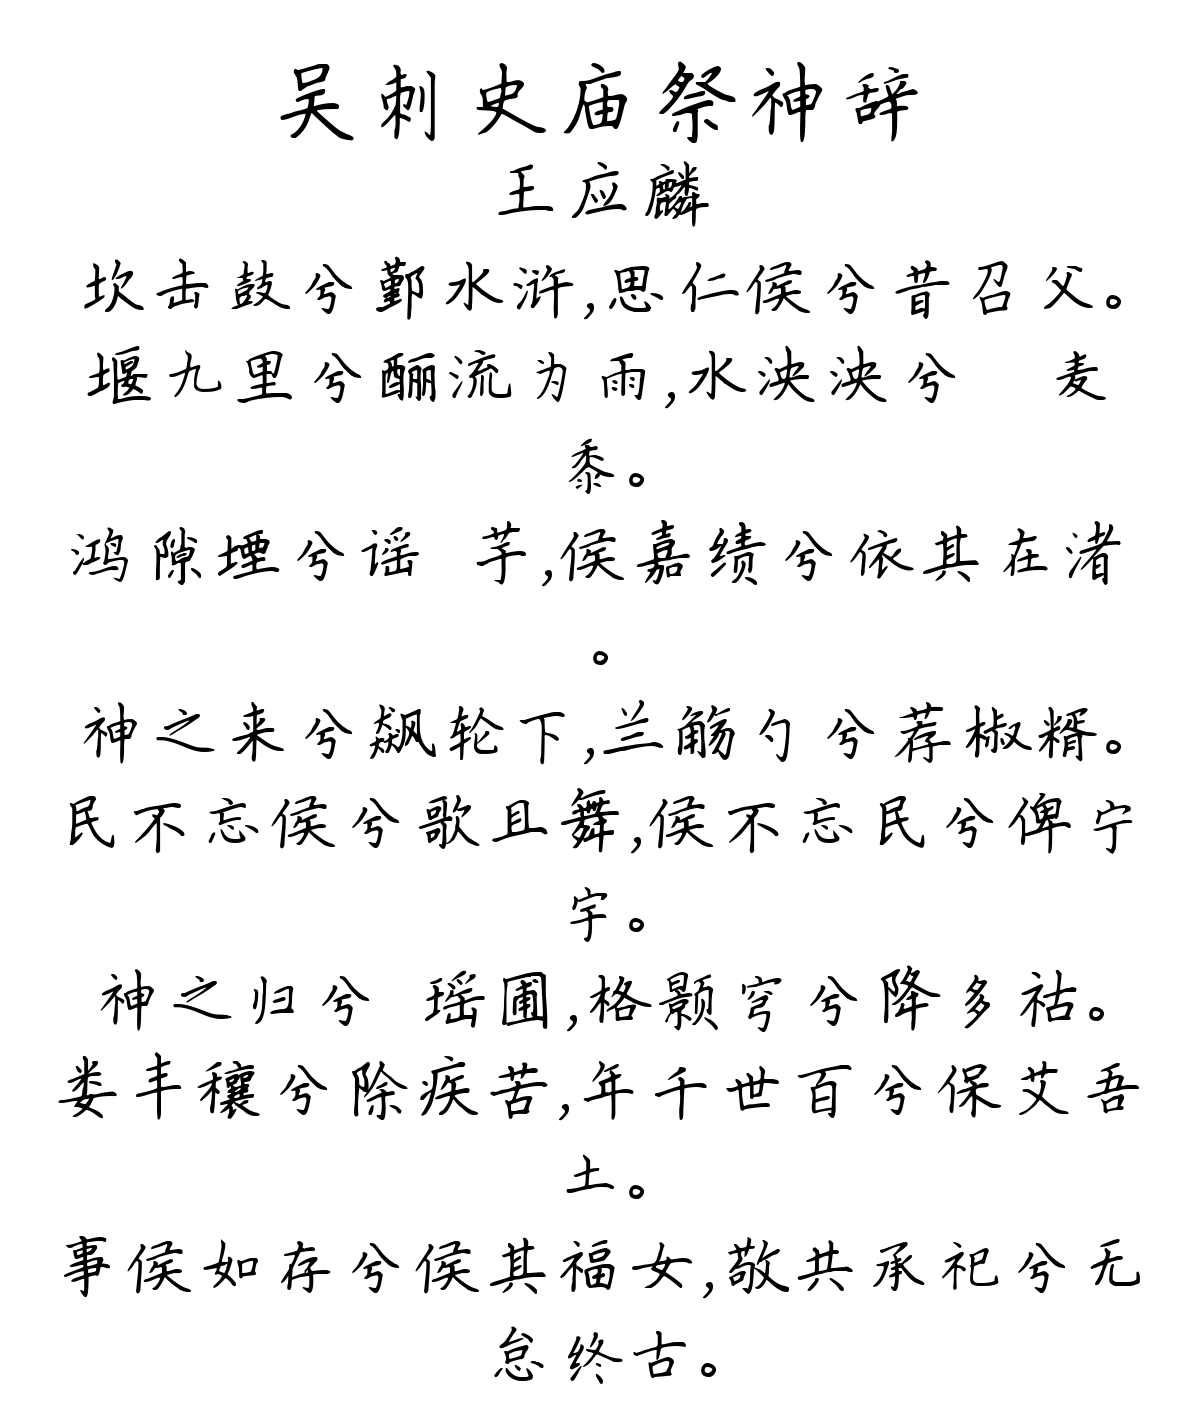 吴刺史庙祭神辞
王应麟
坎击鼓兮鄞水浒,思仁侯兮昔召父。
堰九里兮酾流为雨,水泱泱兮 麦
黍。
鸿隙堙兮谣 芋,侯嘉绩兮依其在渚
。
神之来兮飙轮下,兰觞勺兮荐椒糈。
民不忘侯兮歌且舞,侯不忘民兮俾宁
宇。
神之归兮 瑶圃,格颢穹兮降多祜。
娄丰穰兮除疾苦,年千世百兮保艾吾
土。
事侯如存兮侯其福女,敬共承祀兮无
怠终古。